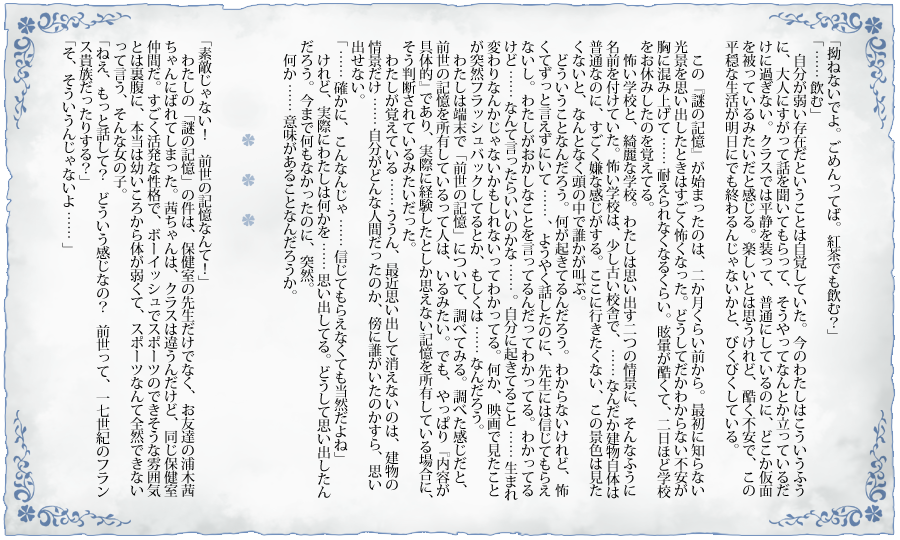 「拗ねないでよ。ごめんってば。紅茶でも飲む？」
「……飲む」
　自分が弱い存在だということは自覚していた。今のわたしはこういうふう
に、大人にすがって話を聞いてもらって、そうやってなんとか立っているだ
けに過ぎない。クラスでは平静を装って、普通にしているのに、どこか仮面
を被っているみたいだと感じる。楽しいとは思うけれど、酷く不安で、この
平穏な生活が明日にでも終わるんじゃないかと、びくびくしている。
　この『謎の記憶』が始まったのは、二か月くらい前から。最初に知らない
光景を思い出したときはすごく怖くなった。どうしてだかわからない不安が
胸に混み上げて……耐えられなくなるくらい。眩暈が酷くて、二日ほど学校
をお休みしたのを覚えてる。
　怖い学校と、綺麗な学校。わたしは思い出す二つの情景に、そんなふうに
名前を付けていた。怖い学校は、少し古い校舎で、……なんだか建物自体は
普通なのに、すごく嫌な感じがする。ここに行きたくない、この景色は見た
くないと、なんとなく頭の中で誰かが叫ぶ。
　どういうことなんだろう。何が起きてるんだろう。わからないけれど、怖
くてずっと言えずにいて……、ようやく話したのに、先生には信じてもらえ
ないし。わたしがおかしなことを言ってるんだってわかってる。わかってる
けど……なんて言ったらいいのかな……。自分に起きてること……生まれ
変わりなんかじゃないかもしれないってわかってる。何か、映画で見たこと
が突然フラッシュバックしてるとか、もしくは……なんだろう。
　わたしは端末で「前世の記憶」について、調べてみる。調べた感じだと、
前世の記憶を所有しているって人は、いるみたい。でも、やっぱり『内容が
具体的』であり、実際に経験したとしか思えない記憶を所有している場合に、
そう判断されているみたいだった。
　わたしが覚えている……ううん、最近思い出して消えないのは、建物の
情景だけ……自分がどんな人間だったのか、傍に誰がいたのかすら、思い
出せない。
「……確かに、こんなんじゃ……信じてもらえなくても当然だよね」
　けれど、実際にわたしは何かを……思い出してる。どうして思い出したん
だろう。今まで何もなかったのに、突然。
　何か……意味があることなんだろうか。
「素敵じゃない！　前世の記憶なんて！」
　わたしの「謎の記憶」の件は、保健室の先生だけでなく、お友達の浦木茜
ちゃんにばれてしまった。茜ちゃんは、クラスは違うんだけど、同じ保健室
仲間だ。すごく活発な性格で、ボーイッシュでスポーツのできそうな雰囲気
とは裏腹に、本当は幼いころから体が弱くて、スポーツなんて全然できない
って言う、そんな女の子。
「ねえ、もっと話して？　どういう感じなの？　前世って、一七世紀のフラン
ス貴族だったりする？」
「そ、そういうんじゃないよ……」